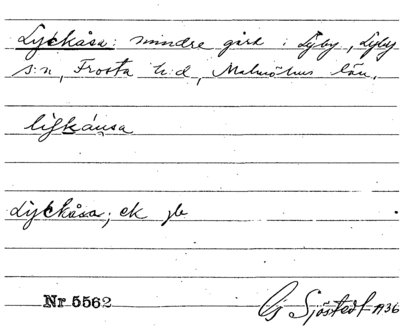 Lyckåsa: mindre gård i Lyby, Lyby
s:n, Frosta h:d, Malmöhus län.
Lyckåsa; ek
Nr 5562
Sjöstedt 1936